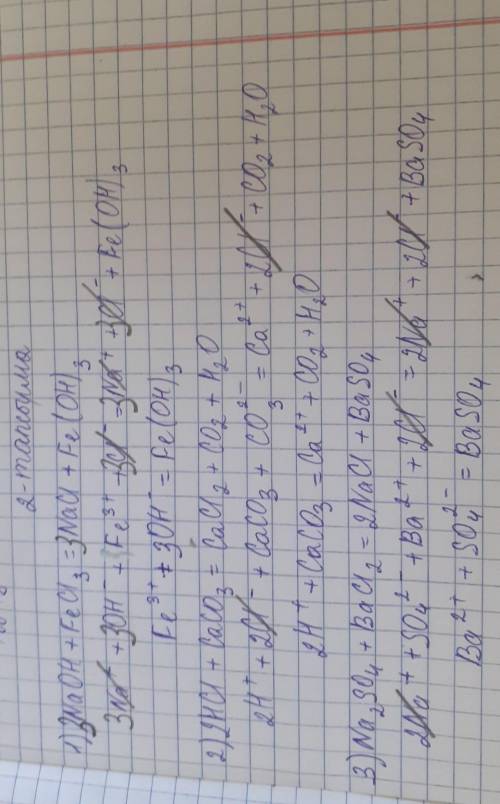 2-тапсырма
1) 3NaOH + FeCl3 = 3NaCl + Fe(OH)3
3Na+ + 3OH- + Fe3+ + 3Cl- = 3Na+ + 3Cl- + Fe(OH)3
Fe3+ + 3OH- = Fe(OH)3
2) 2HCl + CaCO3 = CaCl2 + CO2 + H2O
2H+ + 2Cl- + CaCO3 + CO3 2- = Ca2+ + 2Cl- + CO2 + H2O
2H+ + CaCO3 = Ca2+ + CO2 + H2O
3) Na2SO4 + BaCl2 = 2NaCl + BaSO4
2Na+ + SO4 2- + Ba2+ + 2Cl- = 2Na+ + 2Cl- + BaSO4
Ba2+ + SO4 2- = BaSO4